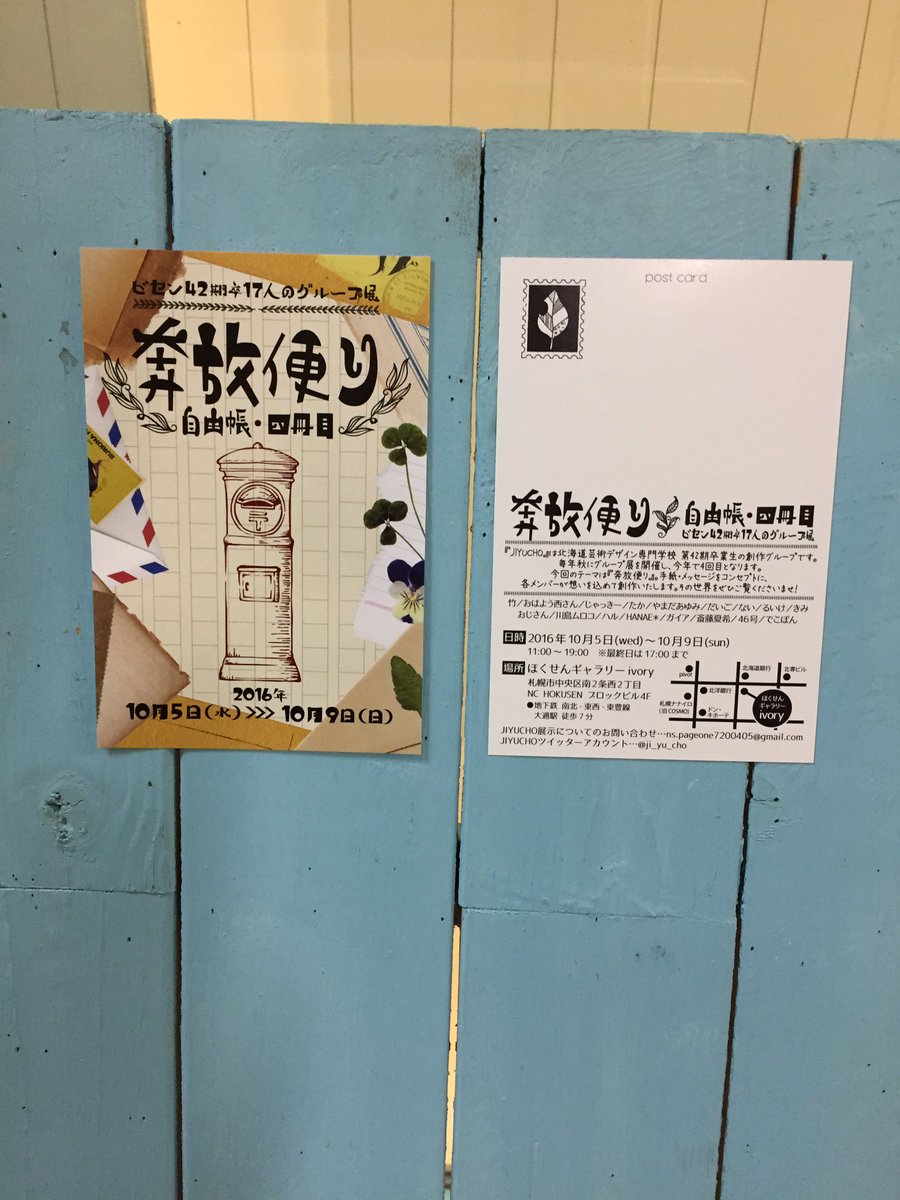 ビセン42期卒17人のグループ展
奔放便り
自由帳・四冊目
〒
2016年
10月5日(水)>>>10月9日(日)
post card
奔放便り 自由帳・四冊目
ビセン42期卒17人のグループ展
『JIYUCHO』は北海道芸術デザイン専門学校 第42期卒業生の創作グループです。
毎年秋にグループ展を開催し、今年で4回目となります。
今回のテーマは『奔放便り』。手紙・メッセージをコンセプトに、
各メンバーが想いを込めて創作いたします。その世界をぜひご覧くださいませ!
竹/おはよう西さん/じゃっきー/たか/やまだあゆみ/だいご/ない/るいけ/きみ
おじさん/川島ムロコ/ハル/HANAE*/ガイア/斎藤夏希/46号/でこぽん
日時 2016年10月5日(wed)〜10月9日(sun)
11:00〜19:00 ※最終日は17:00まで
場所 ほくせんギャラリー ivory
札幌市中央区南2条西2丁目
NC HOKUSEN ブロックビル4F
●地下鉄 南北・東西・東豊線
大通駅 徒歩7分
pivot
北海道銀行
北専ビル
北洋銀行
札幌ナナイロ
(旧COSMO)
ドン・
キホーテ
ほくせん
ギャラリー
ivory
JIYUCHO展示についてのお問い合わせ…ns.pageone7200405@gmail.com
JIYUCHOツイッターアカウント…@ji_yu_cho